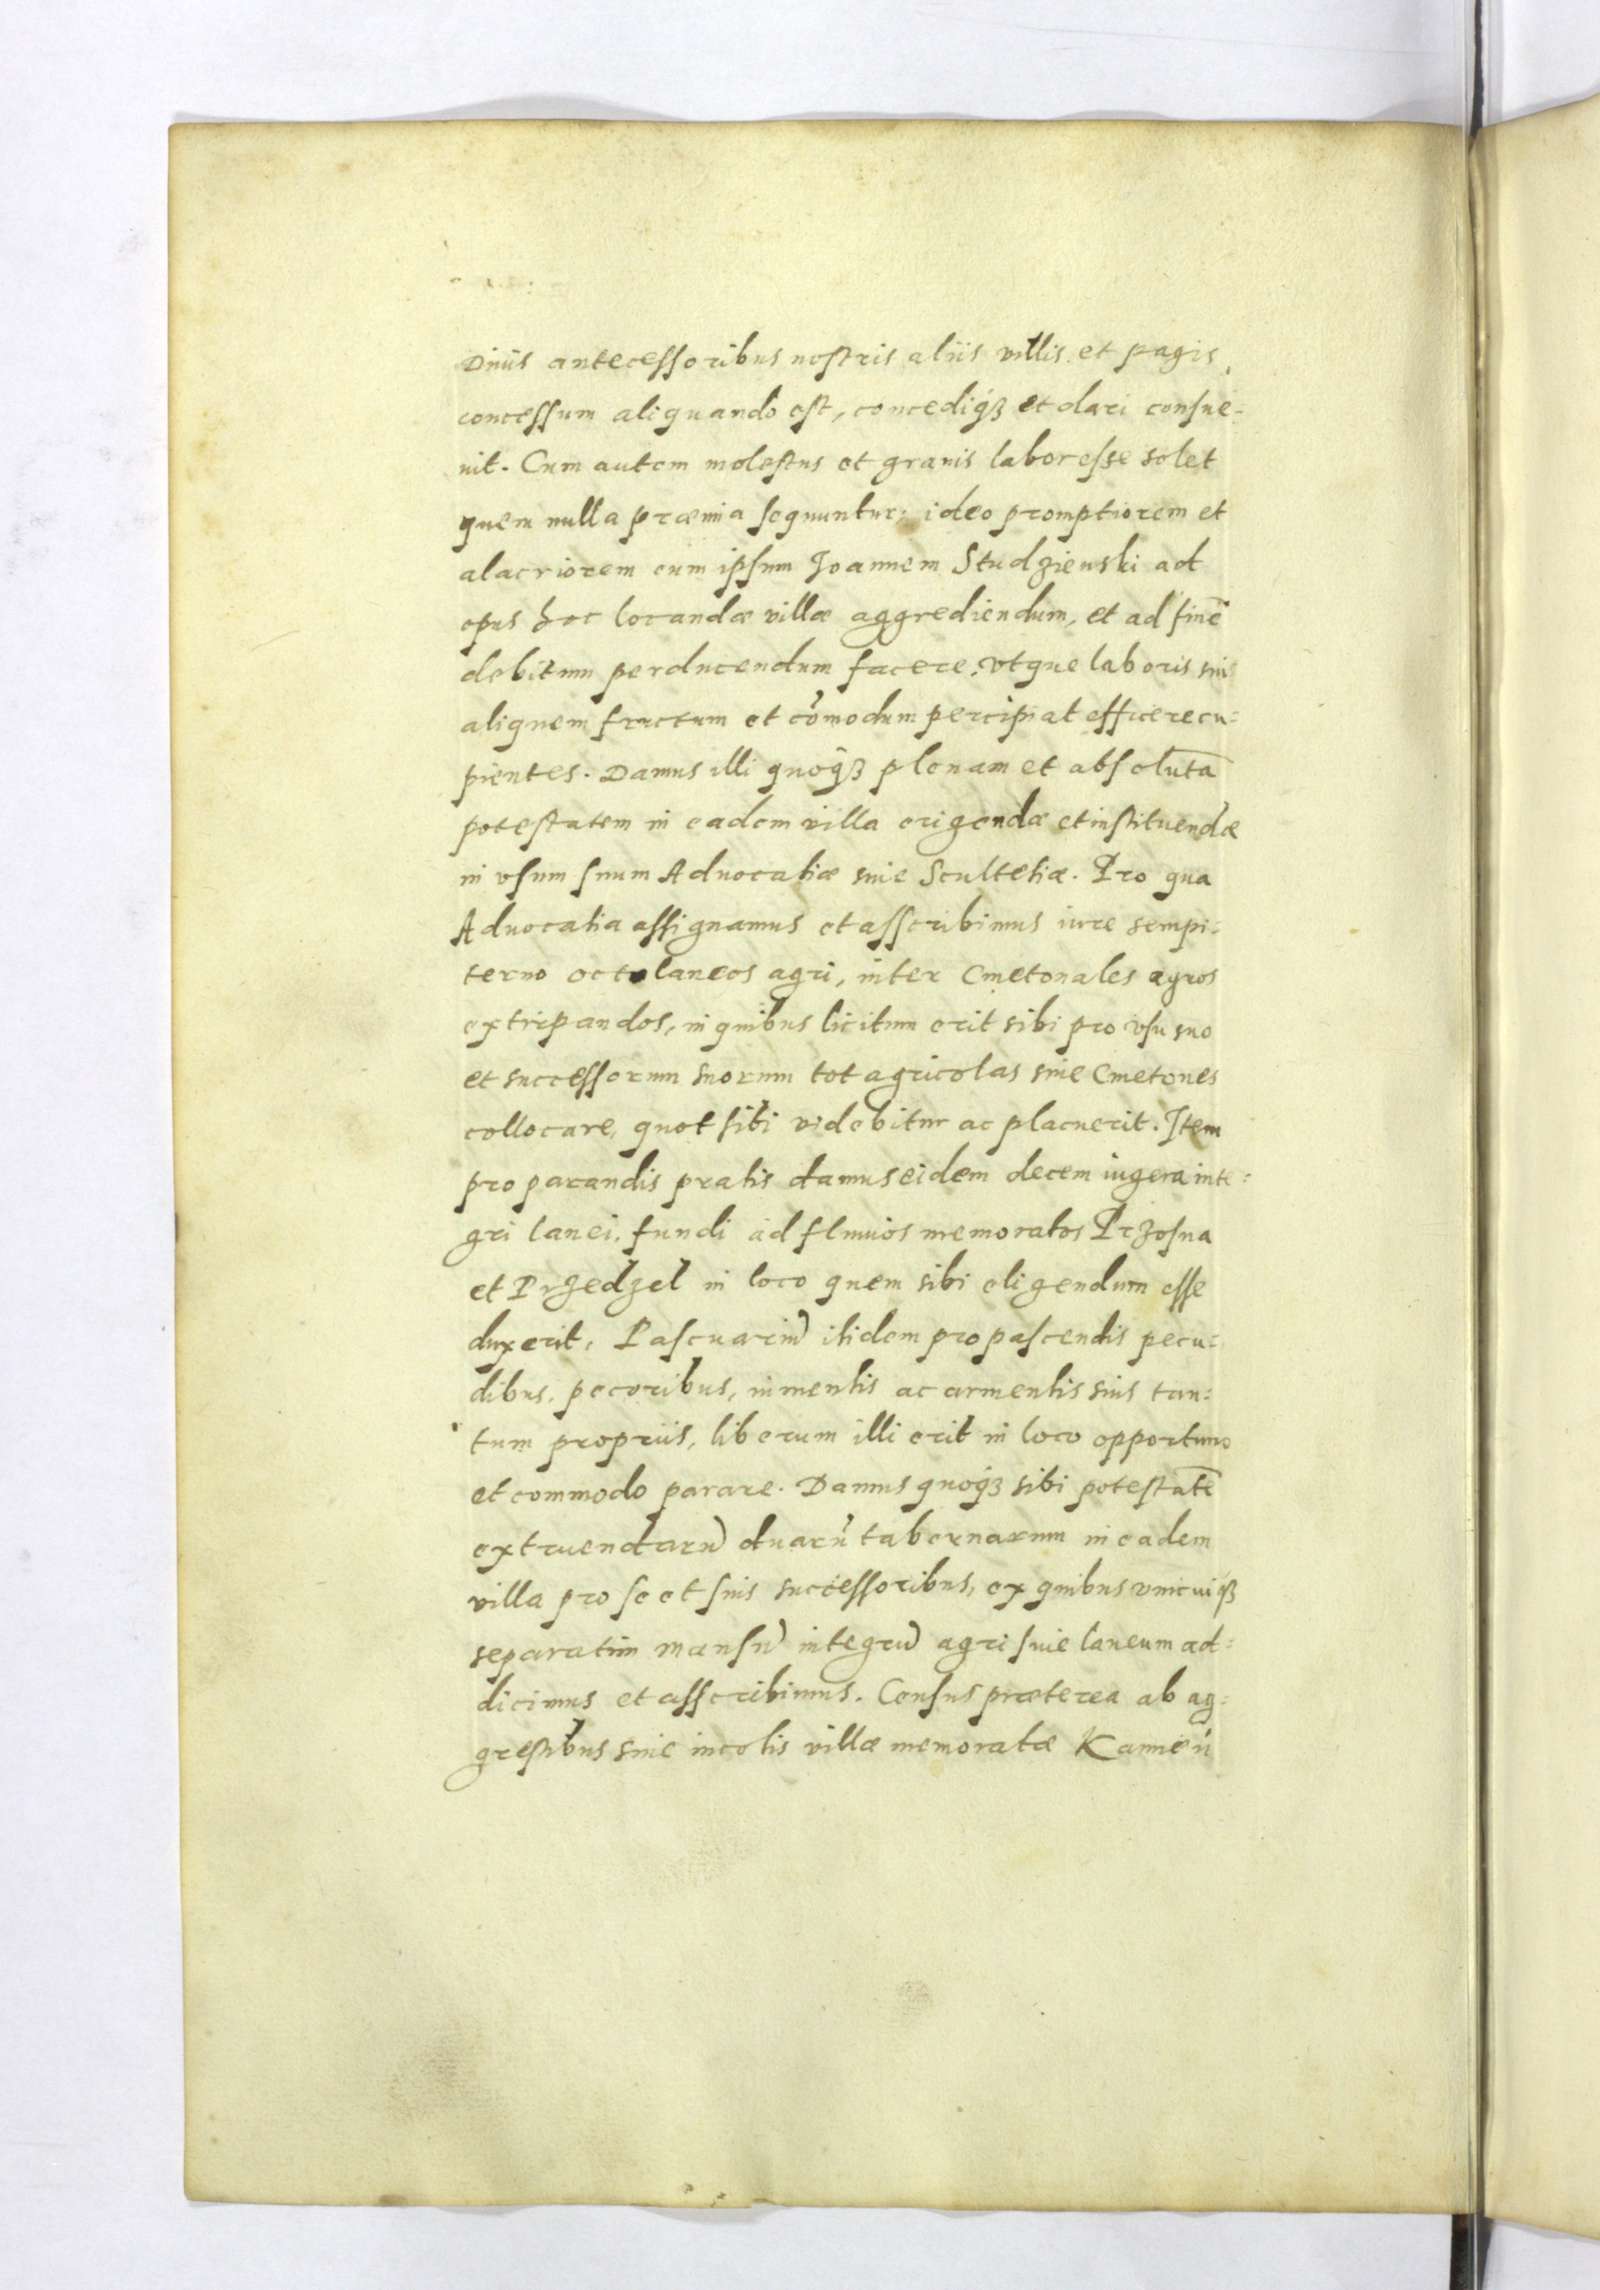 Diuis antecessoribus nostris aliis villis et pagis
concessum aliquando est, concediq3 et dari consue=
uit. Cum autem molestus et grauis labor esse solet
quem nulla præmia sequuntur: ideo promptiorem et
alacriorem eum ipsum Joannem Studzienski ad
opus hoc locandæ villæ aggrediendum, et ad finē
debitum perducendum facere, vtque laboris sui
aliquem fructum et cōmodum percipiat efficere cu=
pientes. Damus illi quoq3 plenam et absolutā
potestatem in eadem villa erigendæ et instituendæ
in vsum suum Aduocatiæ siue Scultetiæ. Pro qua
Aduocatia assignamus et asscribimus iure sempi=
terno octo laneos agri, inter Cmetonales agros
extirpandos, in quibus licitum erit sibi pro vsu suo
et successorum suorum tot agricolas siue Cmetones
collocare, quot sibi videbitur ac placuerit. Item
pro parandis pratis damus eidem decem iugera inte=
gri lanei, fundi ad fluuios memoratos Przosna
et Przedzel in loco quem sibi eligendum esse
duxerit. Pascuariū itidem pro pascendis pecu=
dibus, pecoribus, iumentis ac armentis suis tan=
tum propriis, liberum illi erit in loco opportuno
et commodo parare. Damus quoq3 sibi potestatē
extruendarū duarū tabernarum in eadem
villa pro se et suis successoribus, ex quibus vnicuiq3
separatim mansū integrū agri siue laneum ad=
dicimus et asscribimus. Census præterea ab ag=
grestibus siue incolis villæ memoratæ Kamień